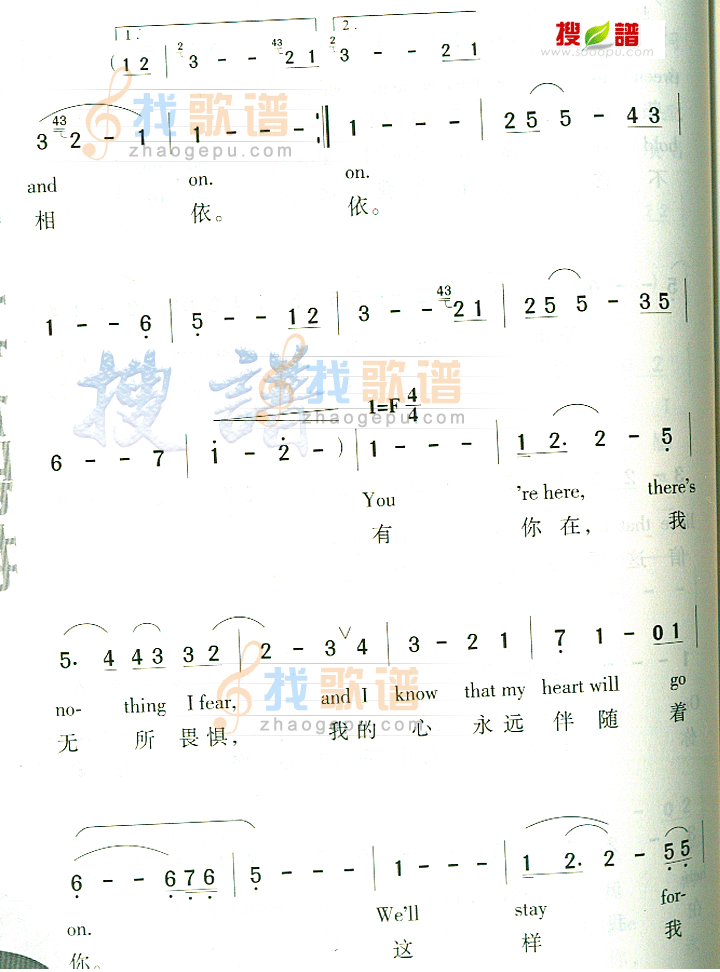 搜谱
www.sooopu.com
1. 2.
( 1 2 | 2 3 - - 43 2 1 2 3 - - 2 1
找歌谱
zhaogepu.com
3 43 2 - 1 | 1 - - - :‖ 1 - - - | 2 5 5 - 4 3 |
and on. on.
相 依。 依。
1 - - 6 | 5 - - 1 2 | 3 - - 43 2 1 | 2 5 5 - 3 5 |
搜譜
找歌谱
zhaogepu.com
1=F 4/4
6 - - 7 | i - 2 - ) | 1 - - - | 1 2. 2 - 5 |
You 're here, there's
有 你在, 我
5. 4 4 3 3 2 | 2 - 3 ∨ 4 | 3 - 2 1 | 7 1 - 0 1 |
no- thing I fear, and I know that my heart will go
无 所 畏 惧, 我的 心 永远 伴随 着
找歌谱
zhaogepu.com
6 - - 6 7 6 | 5 - - - | 1 - - - | 1 2. 2 - 5 5 |
on. We'll stay for-
你。 这 样 我